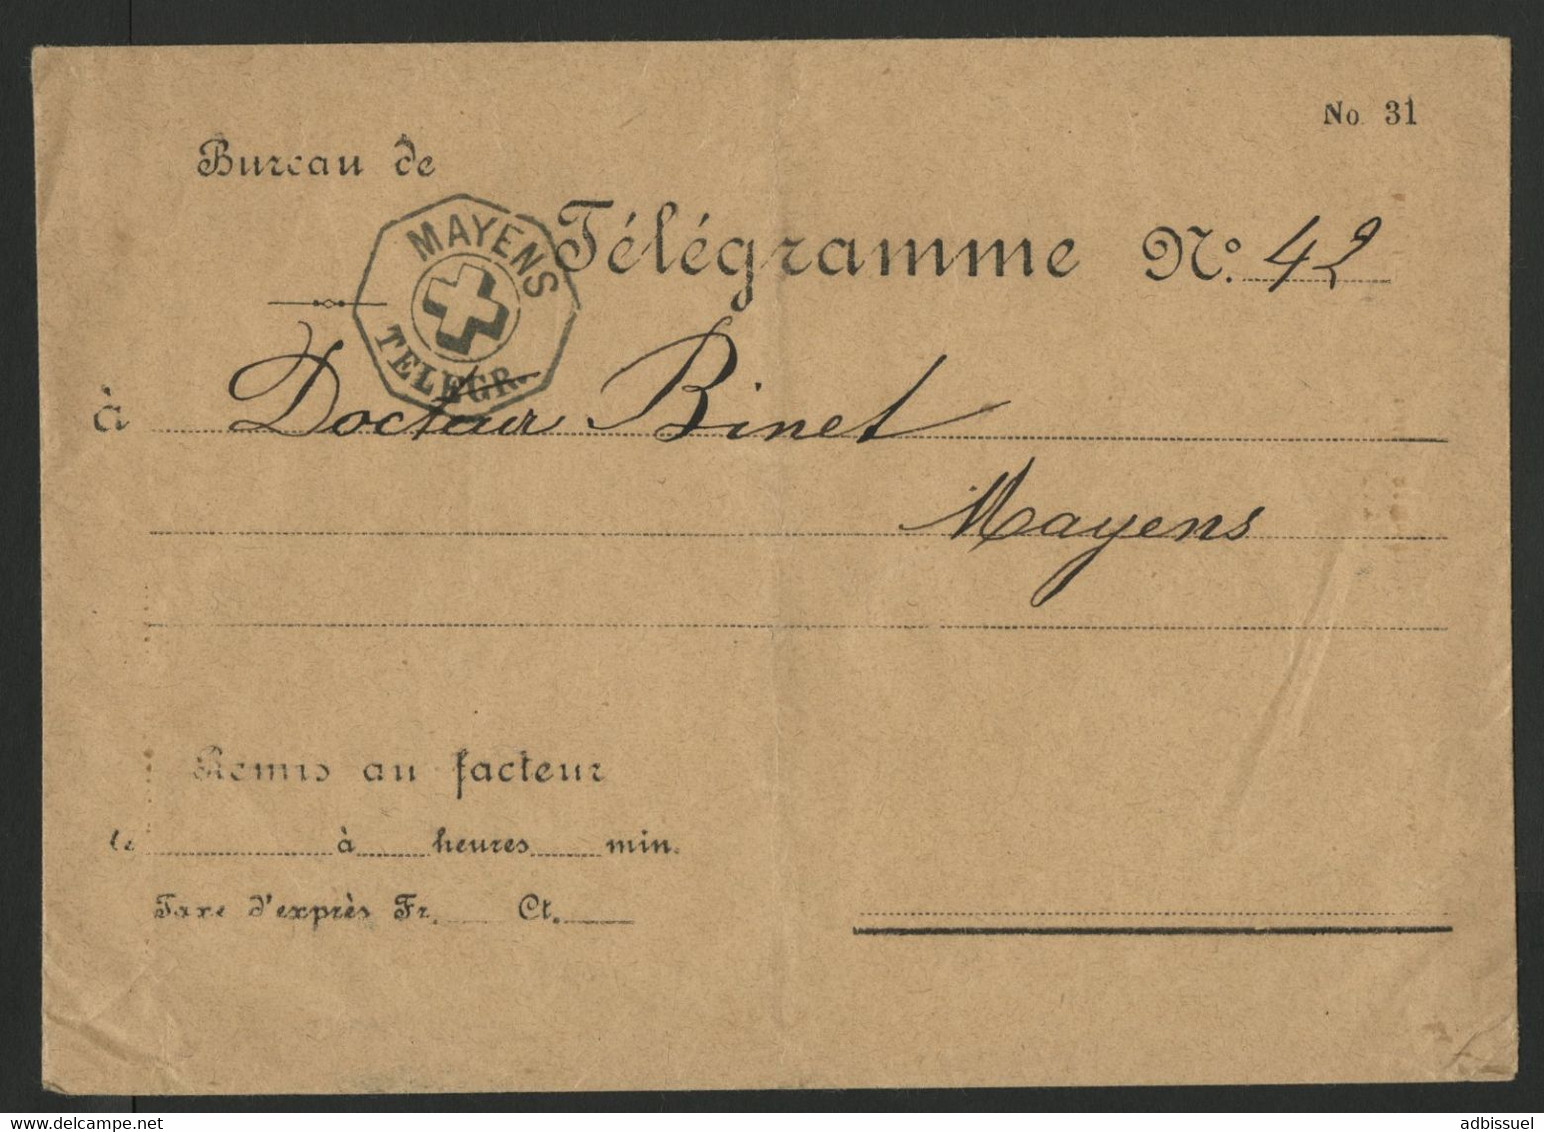 No 31
Bureau de
MAYENS
TELEGR.
Télégramme No. 42
à Docteur Binet
Mayens
Remis au facteur
le à heures min.
Taxe d'exprès Fr. Ct.
delcampe.net
adbissuel